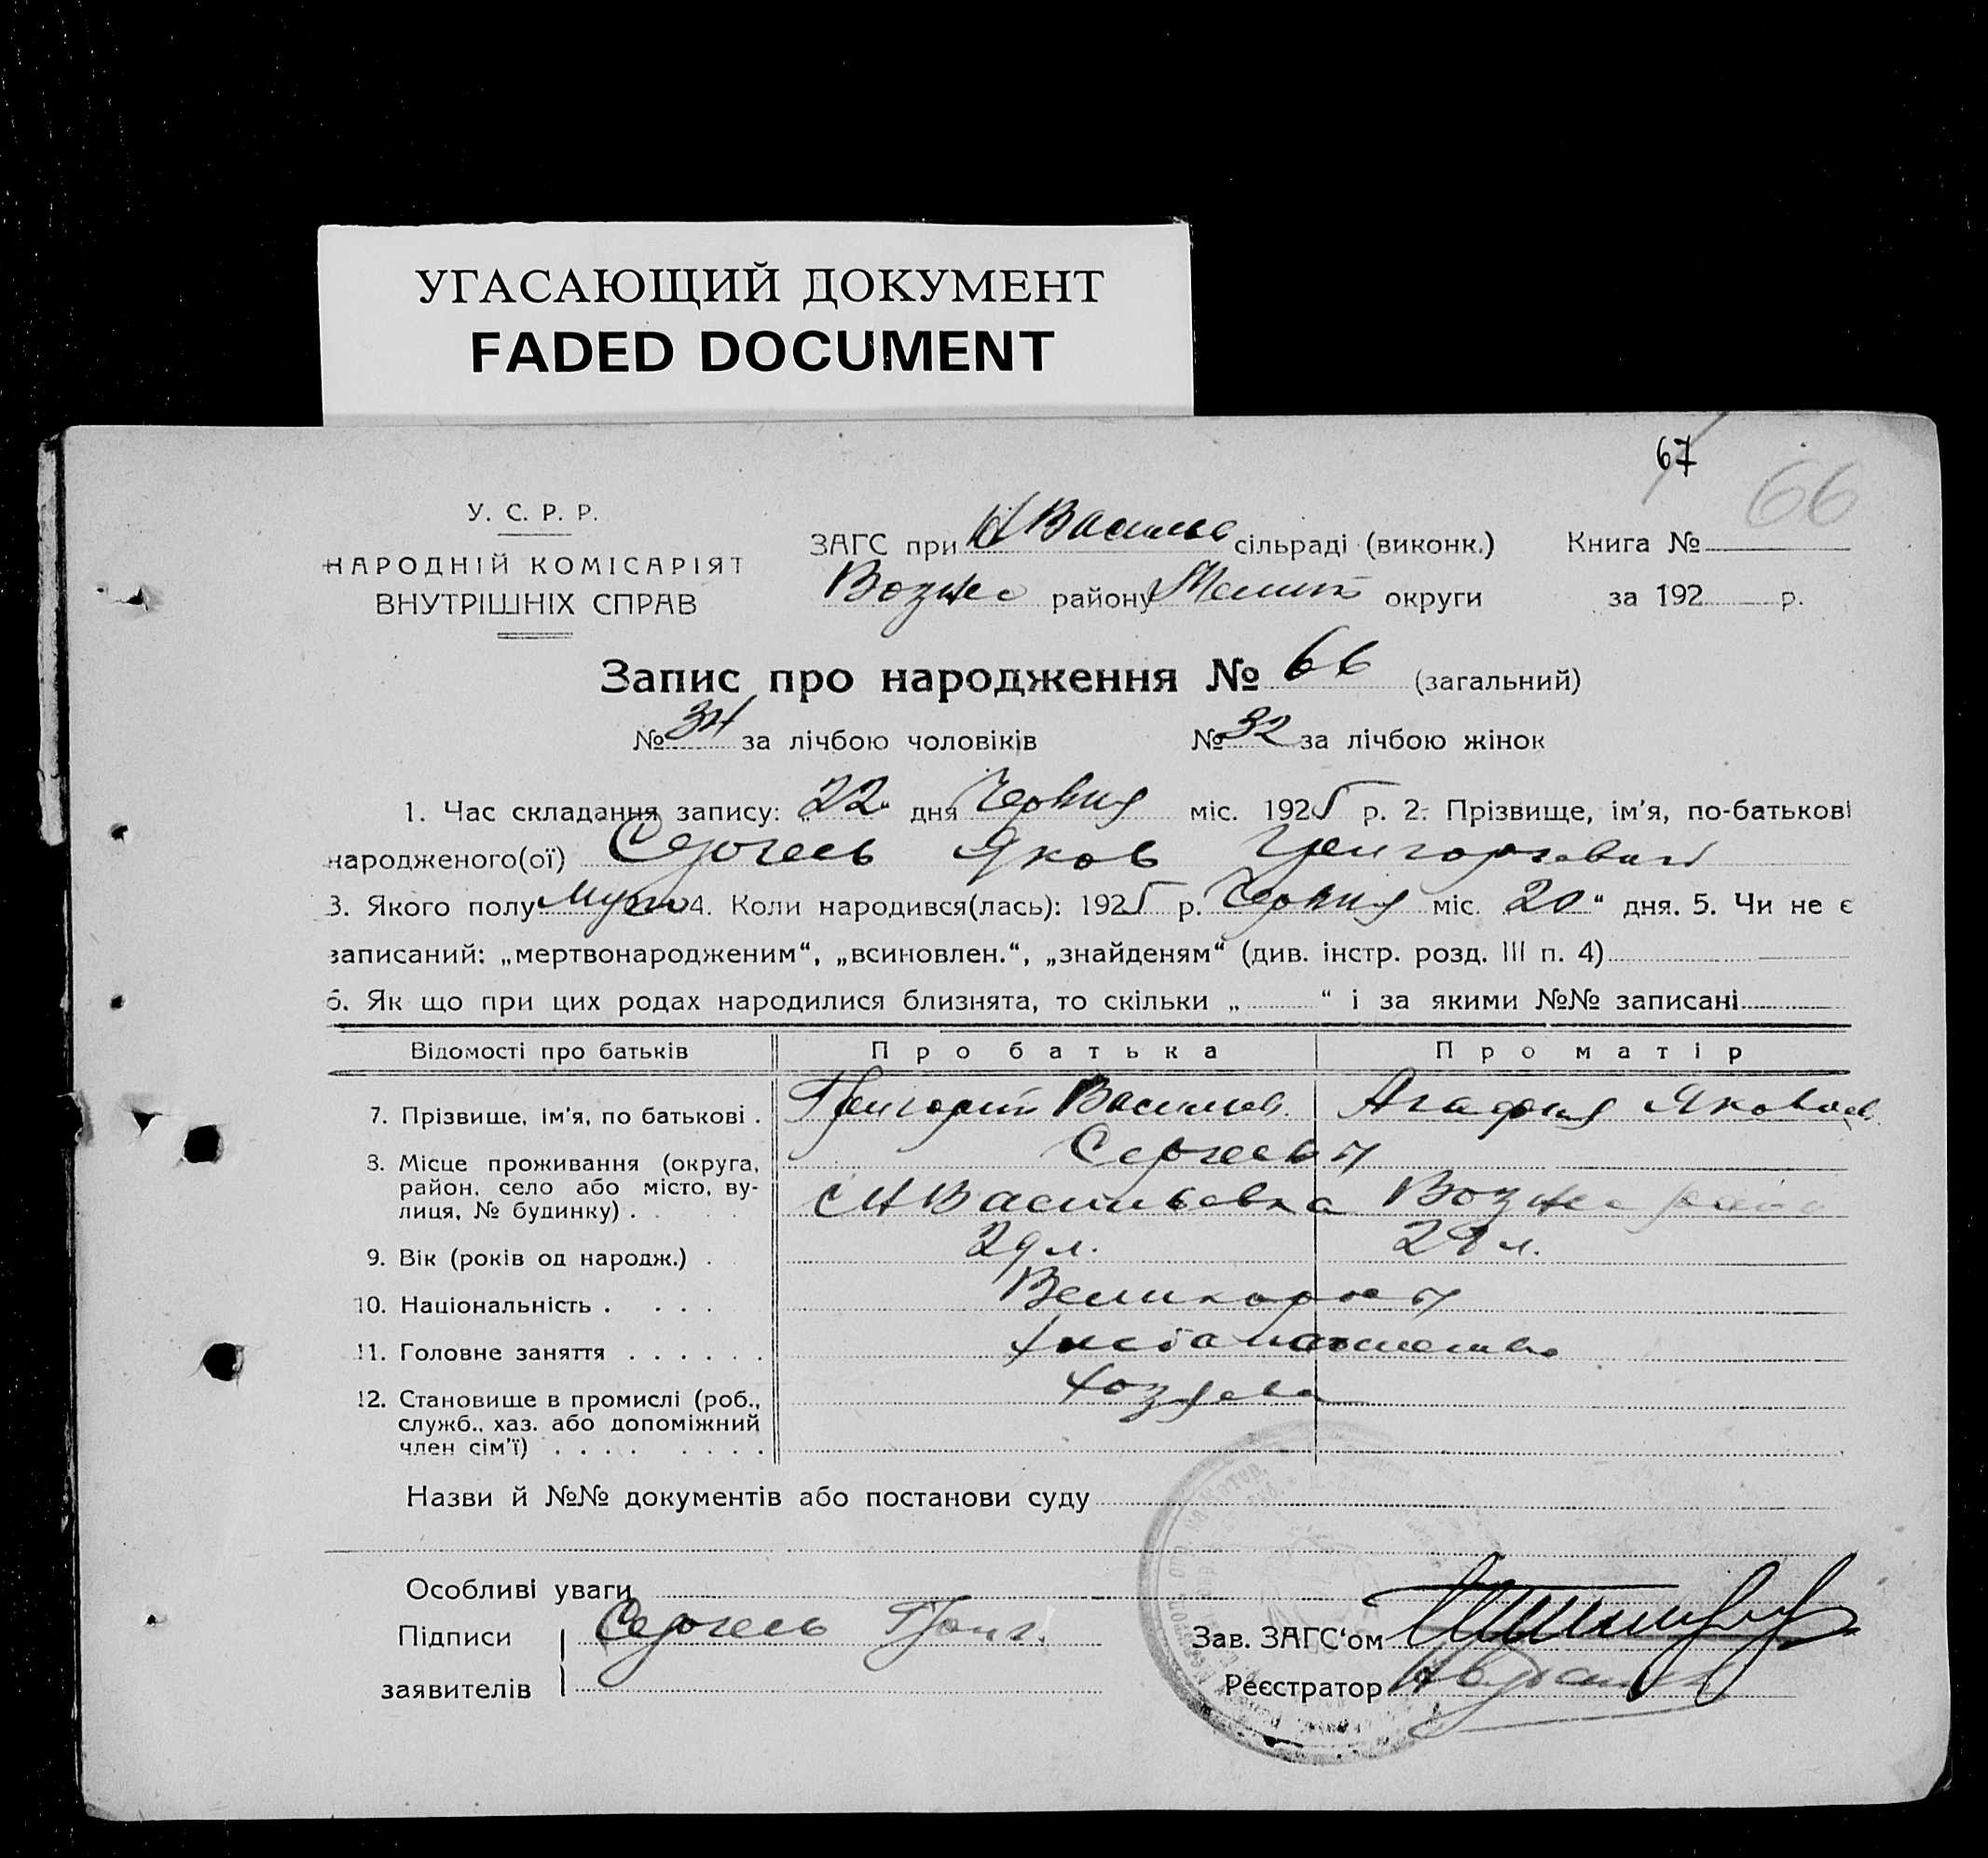 УГАСАЮЩИЙ ДОКУМЕНТ
FADED DOCUMENT
67
66
У. С. Р. Р.
НАРОДНІЙ КОМІСАРІЯТ
ВНУТРІШНІХ СПРАВ
ЗАГС при Н Василье сільраді (виконк.) Книга №
Возне району Мелит округи за 192 р.
Запис про народження № 66 (загальний)
№ 34 за лічбою чоловіків № 32 за лічбою жінок
1. Час складання запису: „22“ дня Червня міс. 1925 р. 2. Прізвище, ім'я, по-батькові
народженого(ої) Сергеев Яков Григориевич
3. Якого полу муж 4. Коли народився(лась): 1925 р. Червня міс. 20“ дня. 5. Чи не є
записаний: „мертвонародженим“, „всиновлен.“, „знайденям“ (див. інстр. розд. III п. 4)
6. Як що при цих родах народилися близнята, то скільки „ “ і за якими №№ записані
Відомості про батьків Про батька Про матір
7. Прізвище, ім'я, по батькові . Григорий Васильев. Агафия Яковлев.
Сергеевы
8. Місце проживання (округа,
район, село або місто, ву-
лиця, № будинку) . с Н Васильевка Возне район
9. Вік (років од народж.) . 29 л. 29 л.
10. Національність . . . . Великоросы
11. Головне заняття . . . . . . хлебопашество
12. Становище в промислі (роб., хозяева
служб., хаз. або допоміжний
член сім'ї) . . . . . . . .
Назви й №№ документів або постанови суду
Особливі уваги
Підписи Сергеев Григ.
заявителів
Зав. ЗАГС'ом
Реєстратор